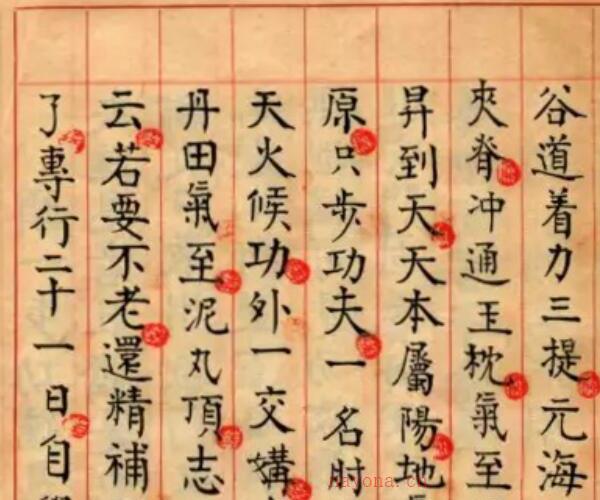 谷道着力三提元海
夾脊冲通玉枕氣至
昇到天天本屬陽地
原只步功夫一名时
天火候功外一交媾
丹田氣至泥丸頂志
云若要不老還精補
了專行二十一日自
nayona.cn